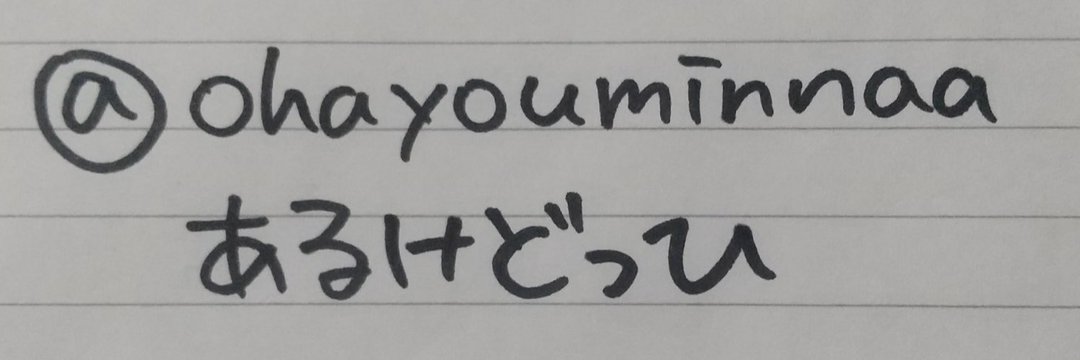 @ohayouminnaa
あるけどっひ